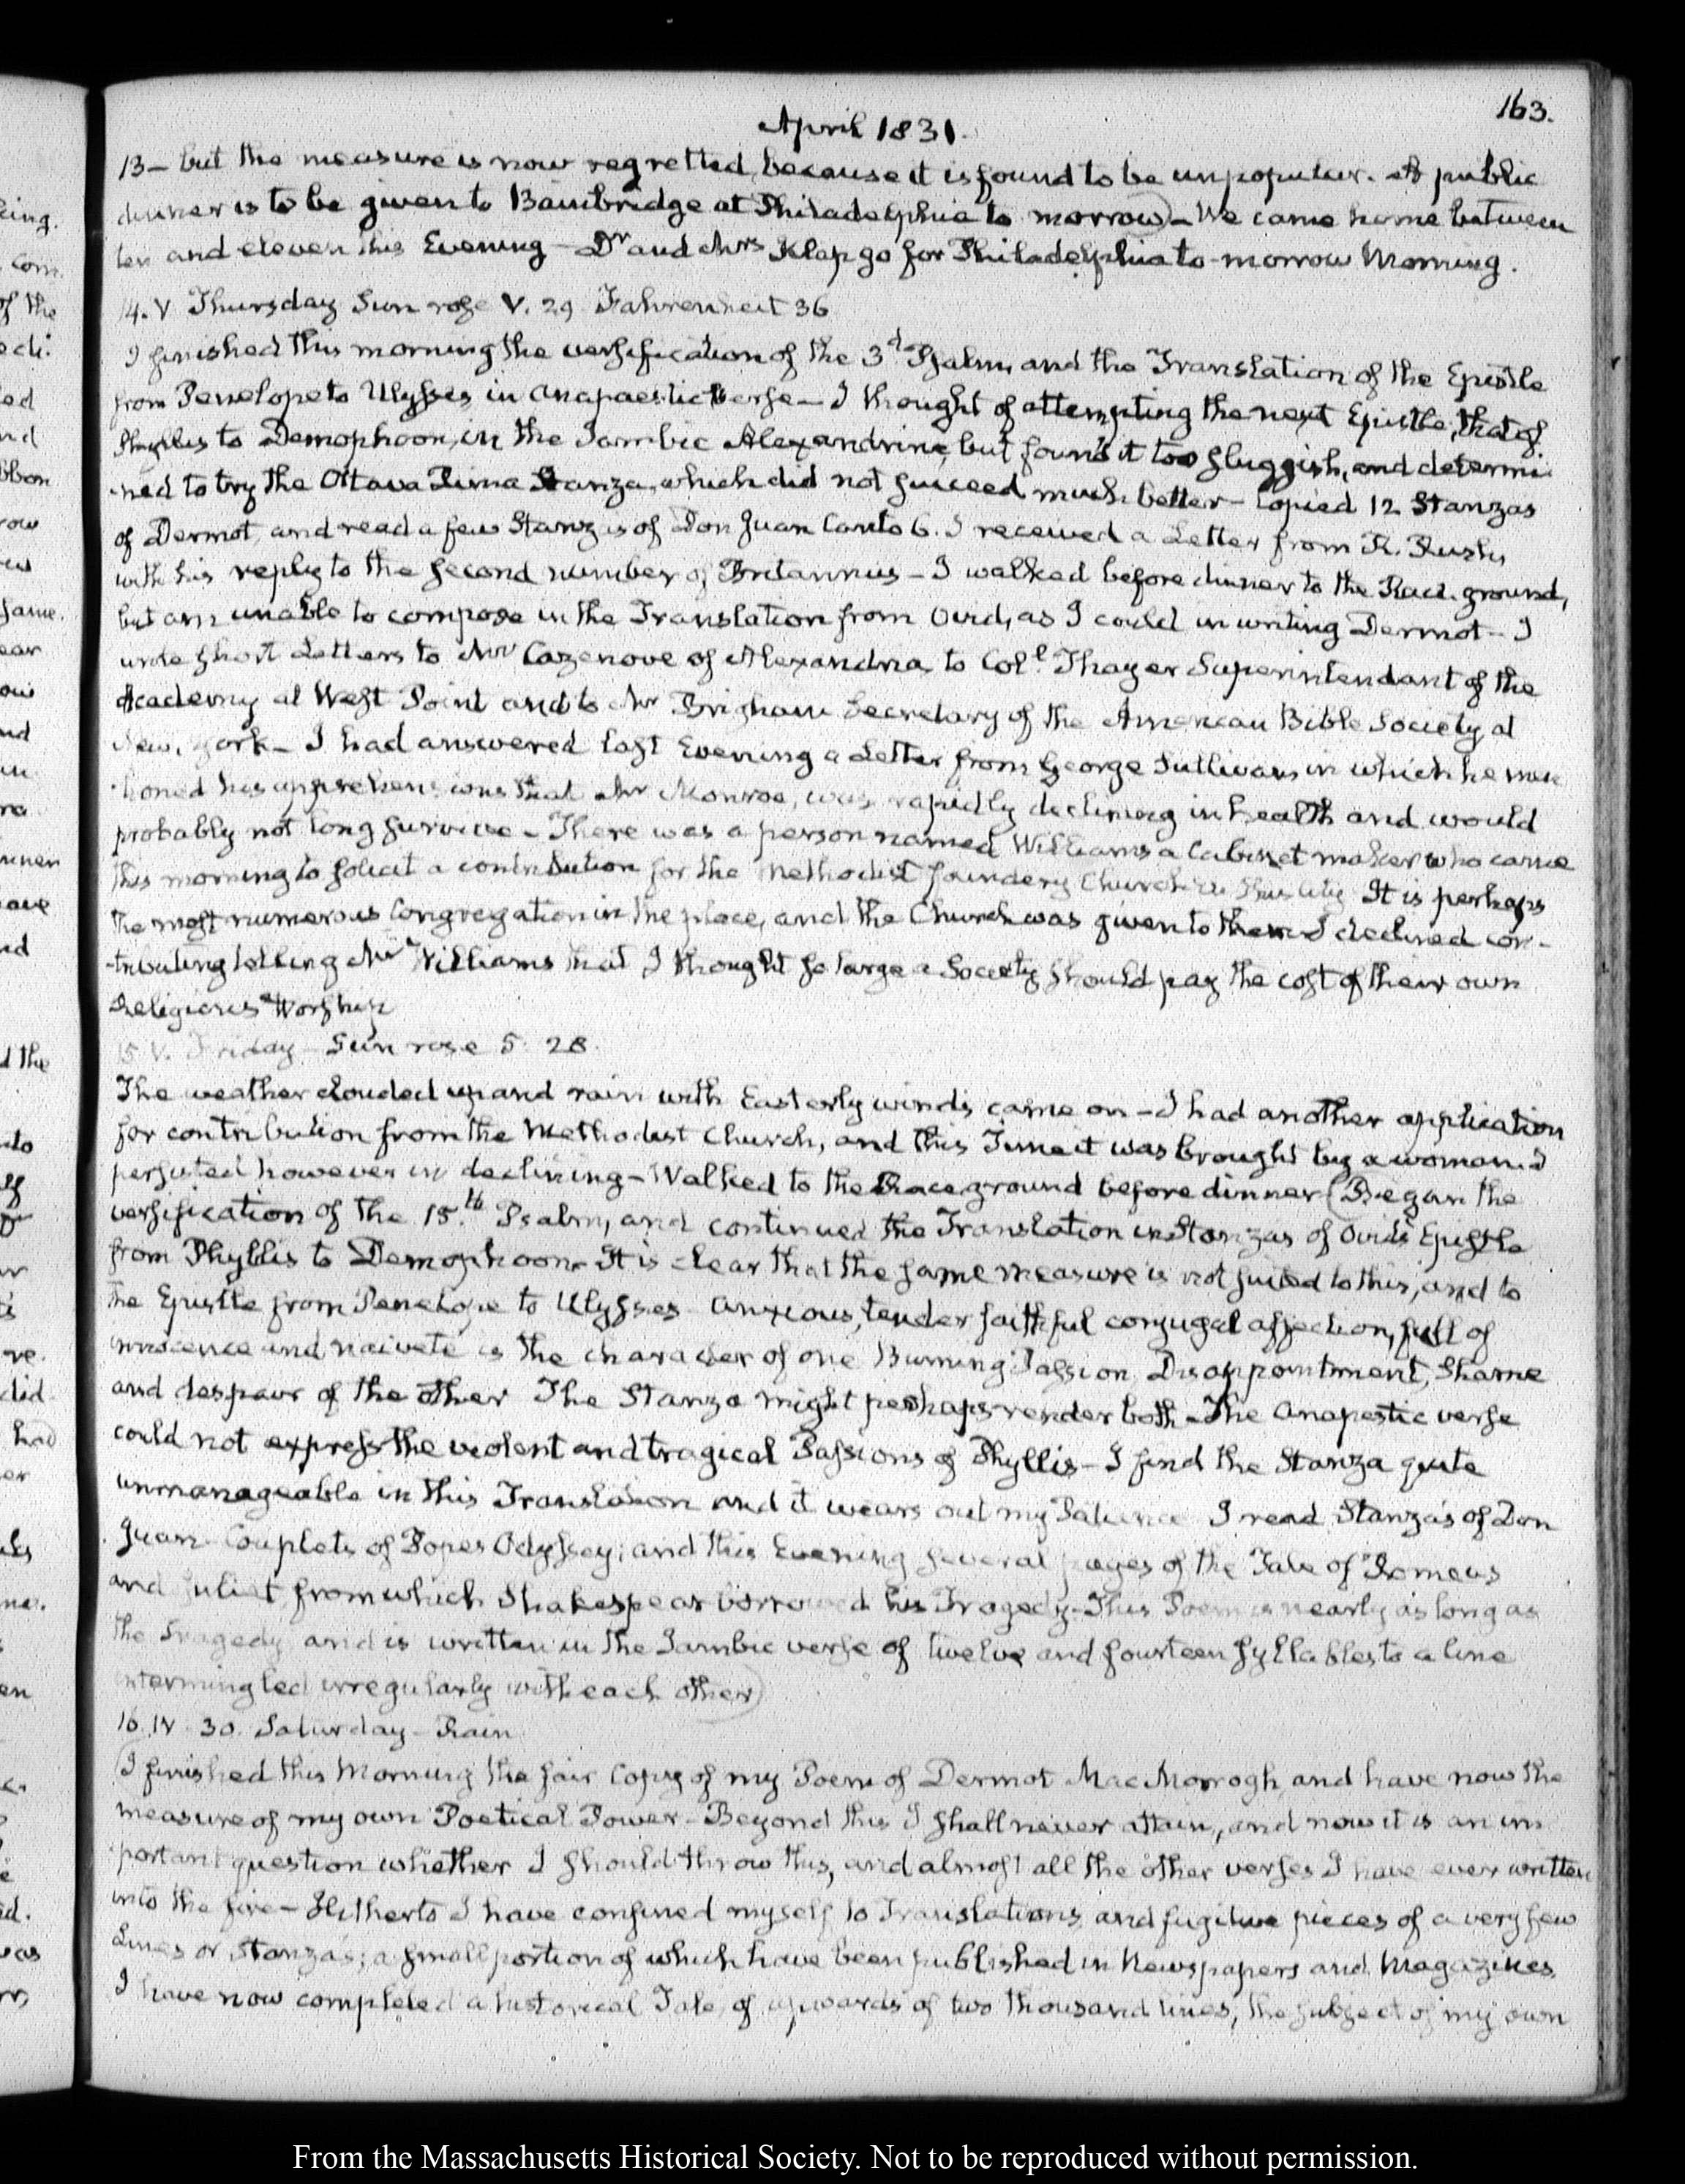 163.
April 1831.
13 – but the measure is now regretted, because it is found to be unpopular. A public
dinner is to be given to Bainbridge at Philadelphia to morrow) – We came home between
ten and eleven this Evening – Dr and Mrs Klap go for Philadelphia to-morrow Morning.
14. V Thursday Sun rose V. 29 Fahrenheit 36
I finished this morning the versification of the 3d Psalm, and the Translation of the Epistle
from Penelope to Ulysses in Anapaestic Verse – I thought of attempting the next Epistle, that of
Phyllis to Demophoon, in the Iambic Alexandrine, but found it too sluggish, and determi-
-ned to try the Ottava Rima Stanza, which did not succeed much better – Copied 12 Stanzas
of Dermot, and read a few Stanzas of Don Juan Canto 6. I received a Letter from R. Rush,
with his reply to the second number of Britannus – I walked before dinner to the Race ground,
but am unable to compose in the Translation from Ovid, as I could in writing Dermot – I
wrote short Letters to Mr Cazenove of Alexandria, to Coll Thayer Superintendant of the
Academy at West Point and to Mr Brigham Secretary of the American Bible Society at
New, York – I had answered last Evening a Letter from George Sullivan in which he men
-tioned his apprehensions that Mr Monroe, was rapidly declining in health and would
probably not long survive – There was a person named Williams a Cabinet maker who came
this morning to solicit a contribution for the Methodist foundery Church in this City It is perhaps
the most numerous Congregation in the place, and the Church was given to them I declined con-
-tributing telling Mr Williams that I thought so large a Society should pay the cost of their own
Religious Worship
15 V. Friday – Sun rose 5. 28.
The weather clouded up and rain with Easterly winds, came on – I had another application
for contribution from the Methodist Church, and this Time it was brought by a woman. I
persisted however in declining – Walked to the Race ground before dinner (Began the
versification of the 15.th Psalm, and continued the Translation in Stanzas of Ovid's Epistle
from Phyllis to Demophoon. It is clear that the same measure is not suited to this, and to
the Epistle from Penelope to Ulysses Anxious, tender faithful conjugal affection, full of
innocence and naiveté is the character of one Burning Passion Disappointment, Shame
and despair of the other The Stanza might perhaps render both – The Anapestic verse
could not express the violent and tragical Passions of Phyllis – I find the Stanza quite
unmanageable in this Translation and it wears out my Patience I read Stanzas of Don
Juan – Couplets of Popes Odyssey; and this Evening several pages of the Tale of Romeus
and Juliet from which Shakespear borrowed his Tragedy – This Poem is nearly as long as
the Tragedy and is written in the Iambic verse of twelve and fourteen syllables to a line
intermingled irregularly with each other)
16. IV. 30. Saturday – Rain
(I finished this Morning the fair Copy of my Poem of Dermot MacMorrogh, and have now the
measure of my own Poetical Power – Beyond this I shall never attain, and now it is an im
-portant question whether I should throw this, and almost all the other verses I have ever written
into the fire – Hitherto I have confined myself to Translations, and fugitive pieces of a very few
Lines or Stanzas; a small portion of which have been published in Newspapers and Magazines
I have now completed a historical Tale, of upwards of two thousand lines, the subject of my own
From the Massachusetts Historical Society. Not to be reproduced without permission.